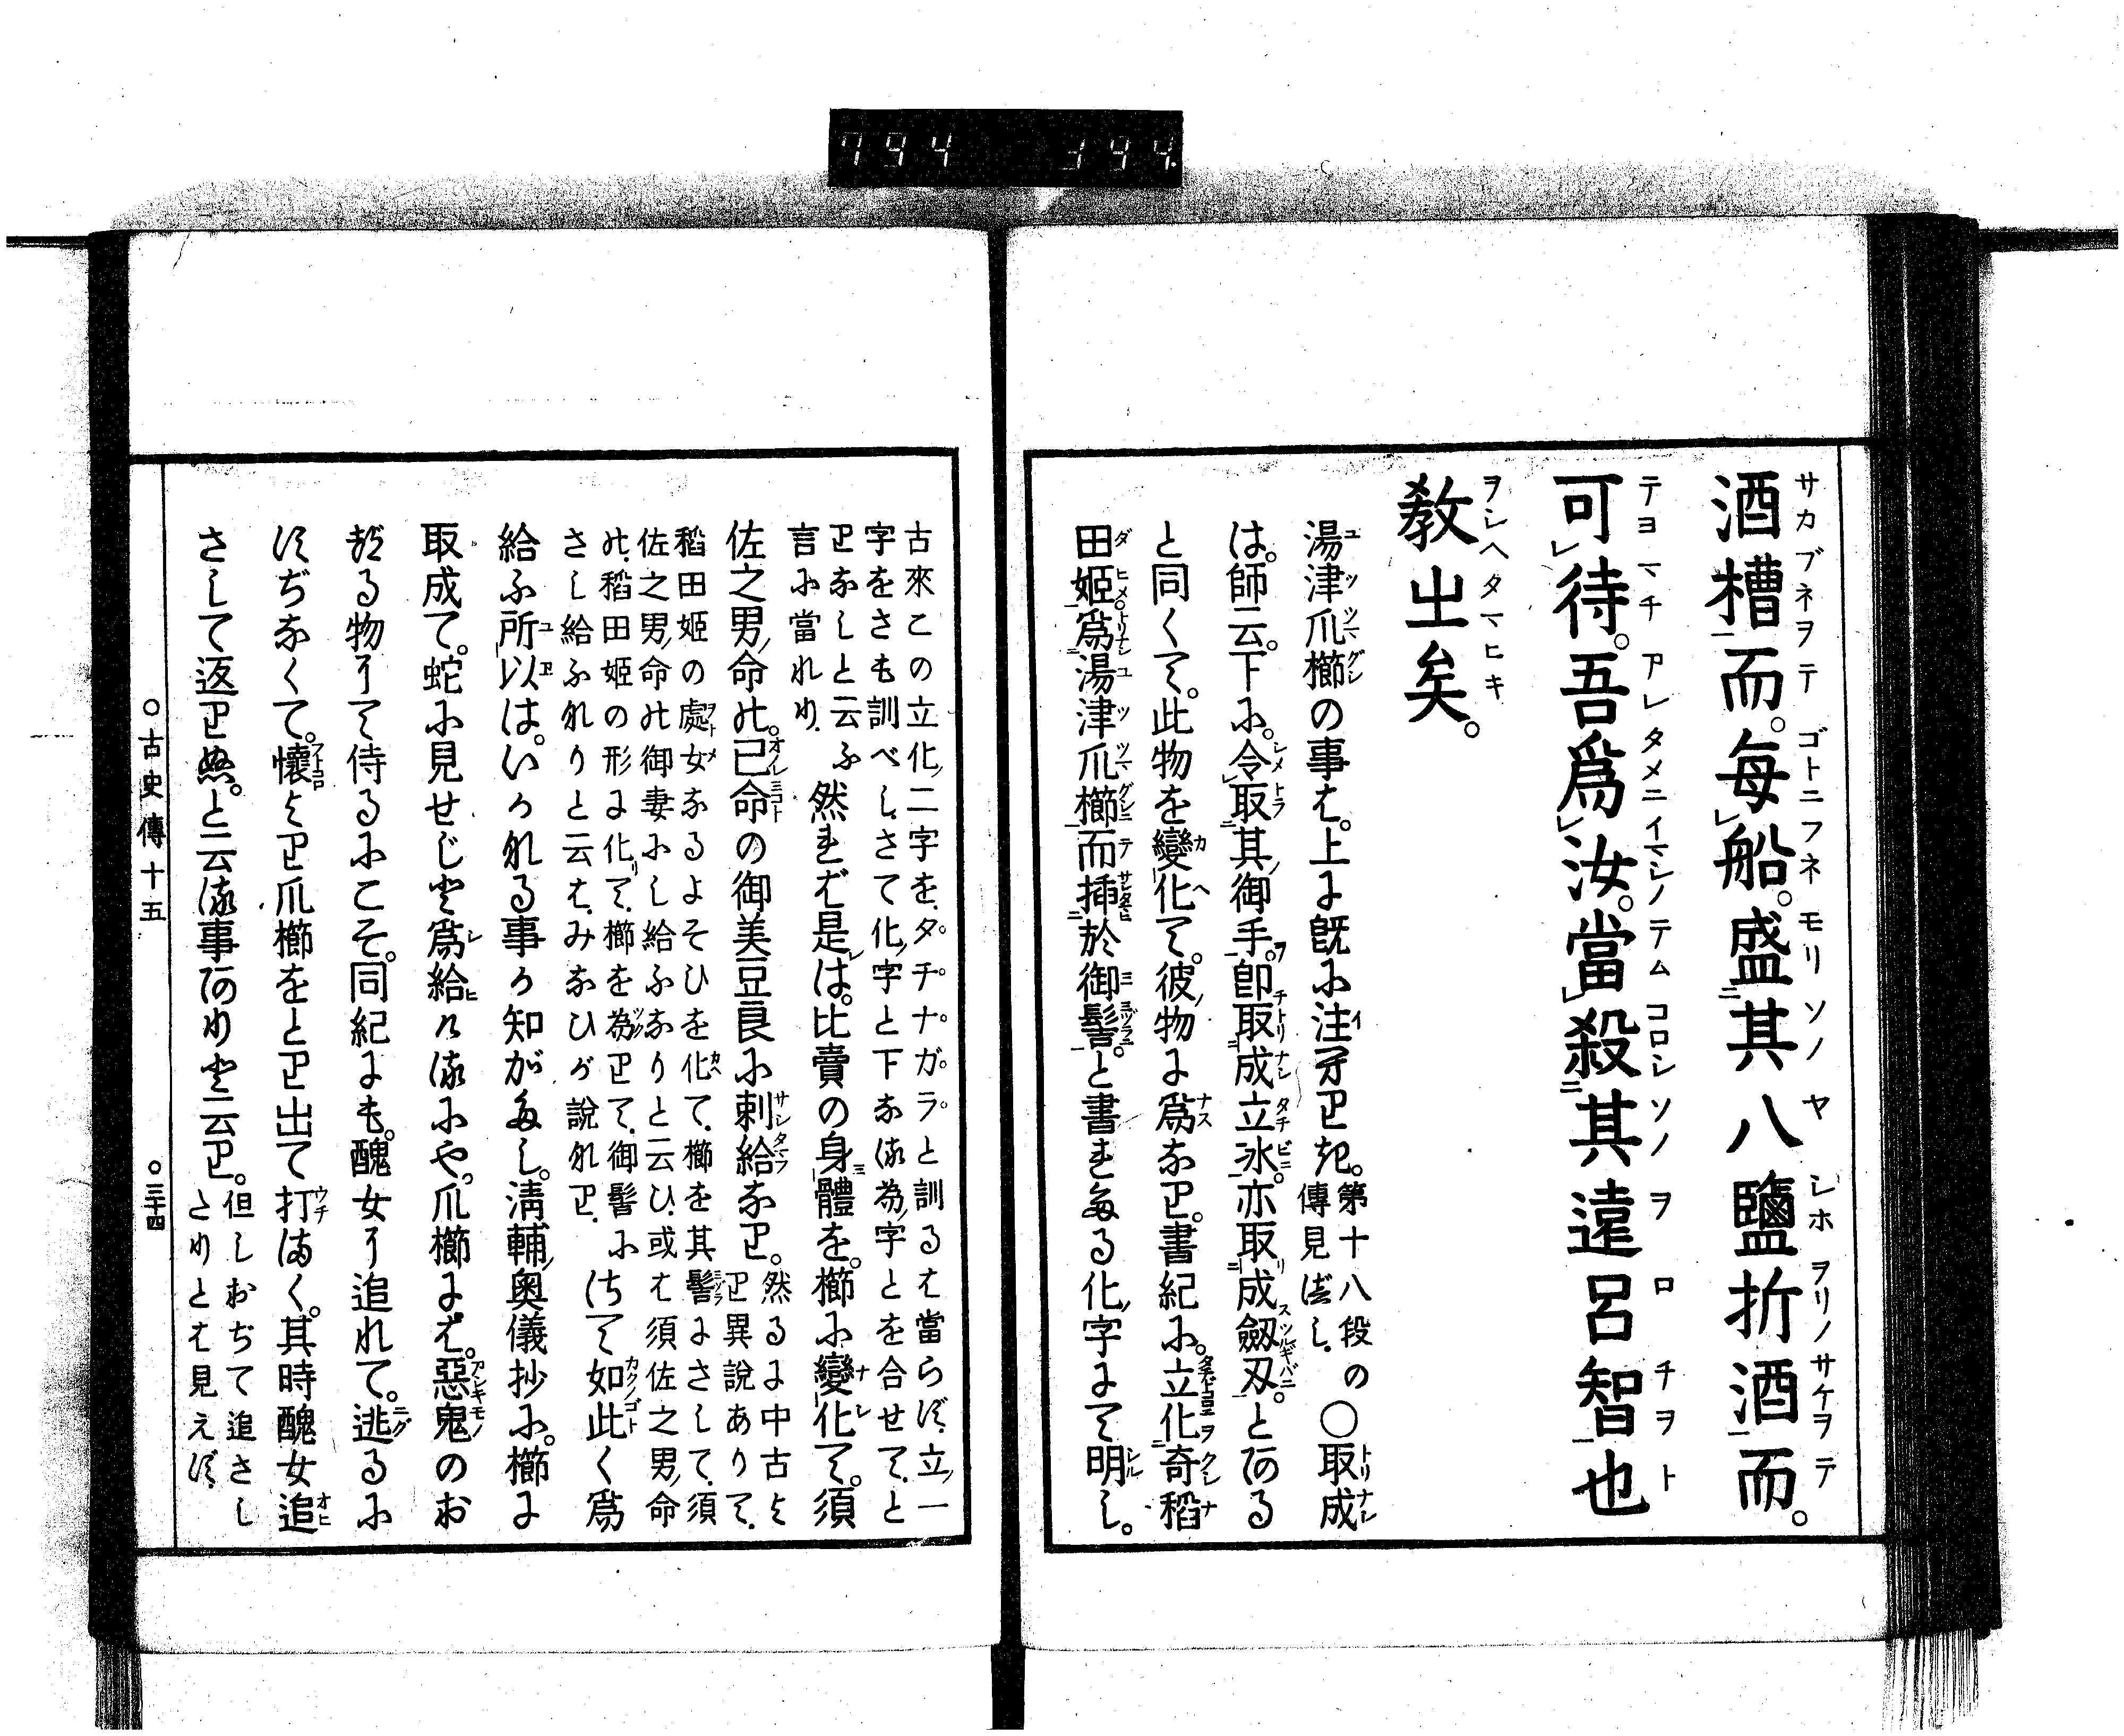 酒槽而。毎船。盛其八鹽折酒而。
可待。吾爲汝。當殺其遠呂智也
教出矣。
湯津爪櫛の事は。上に既に注へり。第十八段の傳見べし。○取成
は。師云。下に。令取其御手。卽取成立氷。亦取成劔刃。とある
と同くて。此物を變化て。彼物に爲なり。書紀に。立化奇稻
田姬爲湯津爪櫛而挿於御髻。と書きたる化ノ字にて明し。
古來この立化ノ二字を、タチナガラと訓るは當らず、立ノ一
字をさも訓べし、さて化ノ字と下なる為ノ字とを合せて、と
りなしと云ふ
言に當れり、然れば是は。比賣の身體を。櫛に變化て。須
佐之男ノ命の。己命の御美豆良に刺給なり。然るに中古より異説ありて、
稻田姬の處女なるよそひを化て、櫛を其髻にさして、須
佐之男ノ命の御妻にし給ふなりと云ひ、或は須佐之男ノ命
の、稻田姬の形に化て、櫛を為りて、御髻に
さし給ふなりと云は、みなひが說なり、さて如此く爲
給ふ所以は。いかなる事か知がたし。淸輔ノ奧儀抄に。櫛に
取成て。蛇に見せじと爲給へるにや。爪櫛には。惡鬼のお
づる物にて侍るにこそ。同紀にも。醜女に追れて。逃るに
ずぢなくて。懷より爪櫛をとり出て打まく。其時醜女追
さして返りぬ。と云る事あめりと云り。但しおぢて追さし
ためりとは見えず、
○古史傳十五
○三十四
794